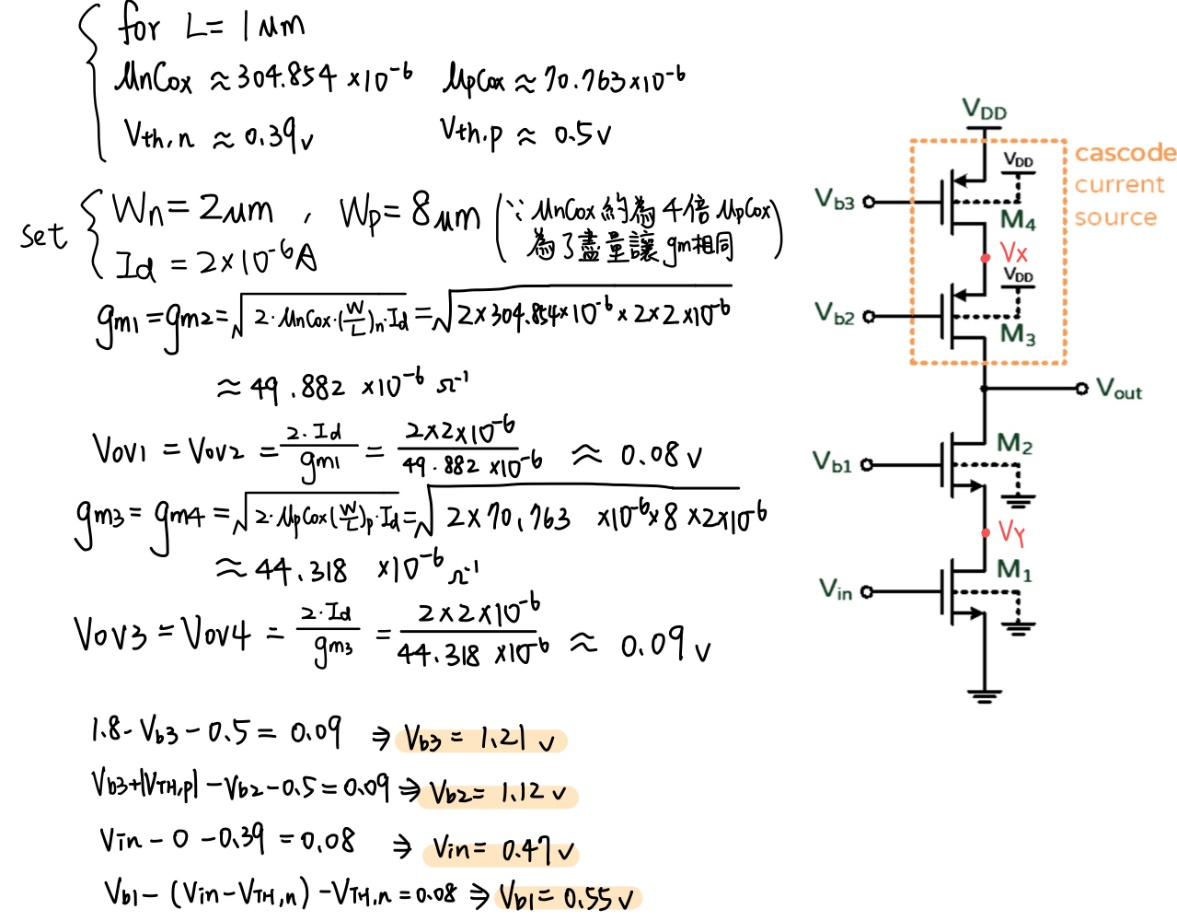 for L = 1μm
μnCox ≈ 304.854 ×10⁻⁶ μpCox ≈ 70.763×10⁻⁶
Vth,n ≈ 0.39v Vth,p ≈ 0.5v
set Wn = 2μm , Wp = 8μm (∵ μnCox 約為 4倍 μpCox
為了盡量讓 gm相同)
Id = 2×10⁻⁶A
gm1 = gm2 = √(2·μnCox·(W/L)n·Id) = √(2×304.854×10⁻⁶×2×2×10⁻⁶)
≈ 49.882 ×10⁻⁶ Ω⁻¹
Vov1 = Vov2 = 2·Id/gm1 = 2×2×10⁻⁶/49.882 ×10⁻⁶ ≈ 0.08 v
gm3 = gm4 = √(2·μpCox(W/L)p·Id) = √(2×70.763 ×10⁻⁶×8×2×10⁻⁶)
≈ 44.318 ×10⁻⁶ Ω⁻¹
Vov3 = Vov4 = 2·Id/gm3 = 2×2×10⁻⁶/44.318 ×10⁻⁶ ≈ 0.09 v
1.8 - Vb3 - 0.5 = 0.09 ⇒ Vb3 = 1.21 v
Vb3+|VTH,p| - Vb2 - 0.5 = 0.09 ⇒ Vb2 = 1.12 v
Vin - 0 - 0.39 = 0.08 ⇒ Vin = 0.47 v
Vb1 - (Vin - VTH,n) - VTH,n = 0.08 ⇒ Vb1 = 0.55 v
VDD
cascode
current
source
VDD
Vb3
M4
Vx
VDD
Vb2
M3
Vout
M2
Vb1
VY
M1
Vin